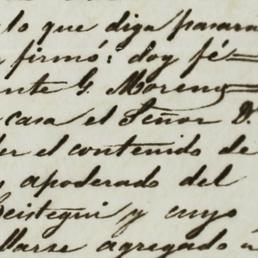 lo que diga pasará
firmó: doy fé=
nte G. Moreno
casa el Señor D.
er el contenido de
y apoderado del
eistegui y cuyo
llarse agregado a